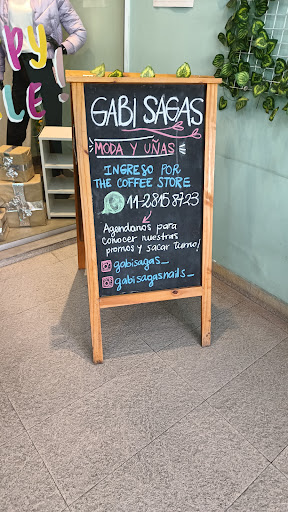 GABI SAGAS
MODA Y UÑAS
INGRESO POR
THE COFFEE STORE
11-2815 8723
Agendanos para
conocer nuestras
promos y sacar turno!
gabisagas_
gabisagasnails_